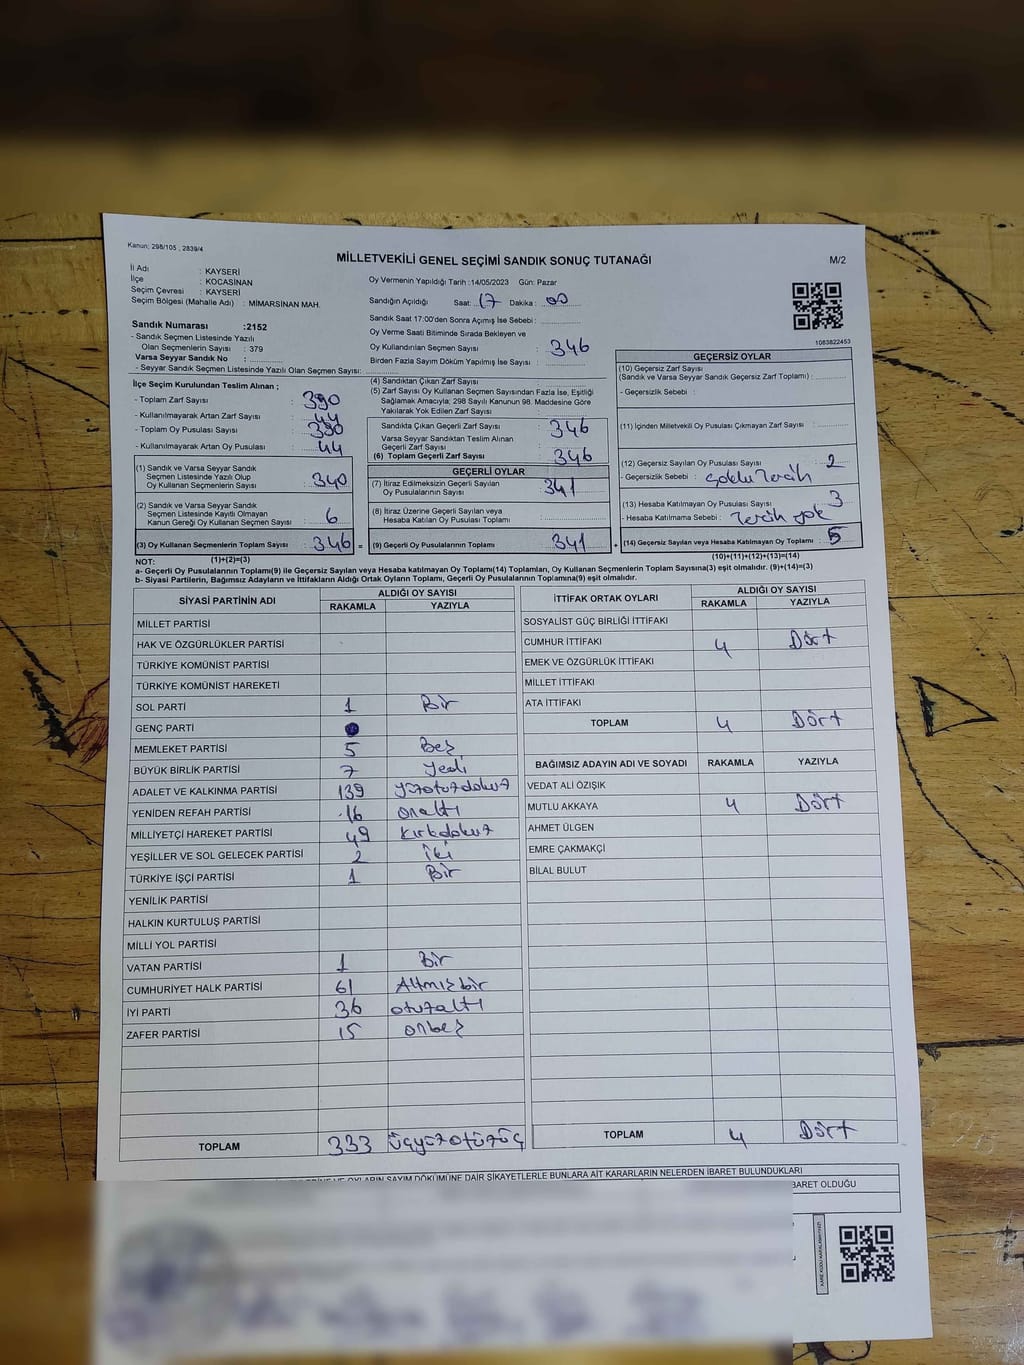 Kanun; 298/105 , 2839/4
MİLLETVEKİLİ GENEL SEÇİMİ SANDIK SONUÇ TUTANAĞI
M/2
İl Adı : KAYSERİ
İlçe : KOCASİNAN
Seçim Çevresi : KAYSERİ
Seçim Bölgesi (Mahalle Adı) : MİMARSİNAN MAH.
Oy Vermenin Yapıldığı Tarih :14/05/2023 Gün: Pazar
Sandığın Açıldığı Saat: 17 Dakika: 00
Sandık Saat 17:00'den Sonra Açımış İse Sebebi :
Oy Verme Saati Bitiminde Sırada Bekleyen ve
Oy Kullandırılan Seçmen Sayısı : 346
Birden Fazla Sayım Döküm Yapılmış İse Sayısı :
1083822453
Sandık Numarası :2152
- Sandık Seçmen Listesinde Yazılı
Olan Seçmenlerin Sayısı : 379
Varsa Seyyar Sandık No :
- Seyyar Sandık Seçmen Listesinde Yazılı Olan Seçmen Sayısı:
İlçe Seçim Kurulundan Teslim Alınan ;
- Toplam Zarf Sayısı : 390
- Kullanılmayarak Artan Zarf Sayısı : 44
- Toplam Oy Pusulası Sayısı : 390
- Kullanılmayarak Artan Oy Pusulası : 44
(1) Sandık ve Varsa Seyyar Sandık
Seçmen Listesinde Yazılı Olup
Oy Kullanan Seçmenlerin Sayısı : 340
(2) Sandık ve Varsa Seyyar Sandık
Seçmen Listesinde Kayıtlı Olmayan
Kanun Gereği Oy Kullanan Seçmen Sayısı : 6
(3) Oy Kullanan Seçmenlerin Toplam Sayısı : 346 =
(1)+(2)=(3)
(4) Sandıktan Çıkan Zarf Sayısı :
(5) Zarf Sayısı Oy Kullanan Seçmen Sayısından Fazla İse, Eşitliği
Sağlamak Amacıyla; 298 Sayılı Kanunun 98. Maddesine Göre
Yakılarak Yok Edilen Zarf Sayısı :
Sandıkta Çıkan Geçerli Zarf Sayısı : 346
Varsa Seyyar Sandıktan Teslim Alınan
Geçerli Zarf Sayısı :
(6) Toplam Geçerli Zarf Sayısı : 346
GEÇERLİ OYLAR
(7) İtiraz Edilmeksizin Geçerli Sayılan
Oy Pusulalarının Sayısı : 341
(8) İtiraz Üzerine Geçerli Sayılan veya
Hesaba Katılan Oy Pusulası Toplamı :
(9) Geçerli Oy Pusulalarının Toplamı : 341 +
GEÇERSİZ OYLAR
(10) Geçersiz Zarf Sayısı
(Sandık ve Varsa Seyyar Sandık Geçersiz Zarf Toplamı) :
- Geçersizlik Sebebi :
(11) İçinden Milletvekili Oy Pusulası Çıkmayan Zarf Sayısı :
(12) Geçersiz Sayılan Oy Pusulası Sayısı : 2
- Geçersizlik Sebebi : çoklu Tercih
(13) Hesaba Katılmayan Oy Pusulası Sayısı : 3
- Hesaba Katılmama Sebebi : Tercih yok
(14) Geçersiz Sayılan veya Hesaba Katılmayan Oy Toplamı : 5
(10)+(11)+(12)+(13)=(14)
NOT:
a- Geçerli Oy Pusulalarının Toplamı(9) ile Geçersiz Sayılan veya Hesaba Katılmayan Oy Toplamı(14) Toplamları, Oy Kullanan Seçmenlerin Toplam Sayısına(3) eşit olmalıdır. (9)+(14)=(3)
b- Siyasi Partilerin, Bağımsız Adayların ve İttifakların Aldığı Ortak Oyların Toplamı, Geçerli Oy Pusulalarının Toplamına(9) eşit olmalıdır.
SİYASİ PARTİNİN ADI ALDIĞI OY SAYISI
RAKAMLA YAZIYLA
MİLLET PARTİSİ
HAK VE ÖZGÜRLÜKLER PARTİSİ
TÜRKİYE KOMÜNİST PARTİSİ
TÜRKİYE KOMÜNİST HAREKETİ
SOL PARTİ 1 Bir
GENÇ PARTİ
MEMLEKET PARTİSİ 5 Beş
BÜYÜK BİRLİK PARTİSİ 7 Yedi
ADALET VE KALKINMA PARTİSİ 139 yüzotuzdokuz
YENİDEN REFAH PARTİSİ 16 onaltı
MİLLİYETÇİ HAREKET PARTİSİ 49 kırkdokuz
YEŞİLLER VE SOL GELECEK PARTİSİ 2 iki
TÜRKİYE İŞÇİ PARTİSİ 1 Bir
YENİLİK PARTİSİ
HALKIN KURTULUŞ PARTİSİ
MİLLİ YOL PARTİSİ
VATAN PARTİSİ 1 Bir
CUMHURİYET HALK PARTİSİ 61 Altmışbir
İYİ PARTİ 36 otuzaltı
ZAFER PARTİSİ 15 onbeş
TOPLAM 333 üçyüzotuzüç
İTTİFAK ORTAK OYLARI ALDIĞI OY SAYISI
RAKAMLA YAZIYLA
SOSYALİST GÜÇ BİRLİĞİ İTTİFAKI
CUMHUR İTTİFAKI 4 Dört
EMEK VE ÖZGÜRLÜK İTTİFAKI
MİLLET İTTİFAKI
ATA İTTİFAKI
TOPLAM 4 Dört
BAĞIMSIZ ADAYIN ADI VE SOYADI RAKAMLA YAZIYLA
VEDAT ALİ ÖZIŞIK
MUTLU AKKAYA 4 Dört
AHMET ÜLGEN
EMRE ÇAKMAKÇİ
BİLAL BULUT
TOPLAM 4 Dört
OYLARIN SAYIM DÖKÜMÜNE DAİR ŞİKAYETLERLE BUNLARA AİT KARARLARIN NELERDEN İBARET BULUNDUKLARI
BARET OLDUĞU